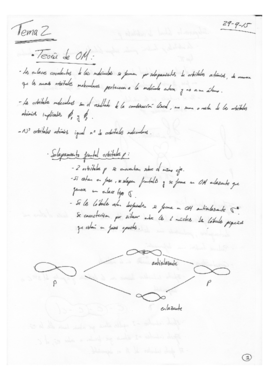 Tema 2
29-9-15
- Teoría de OM:
- Los enlaces covalentes de las moléculas se forman por solapamiento de orbitales atómicos, de manera
que los nuevos orbitales moleculares pertenecen a la molécula entera y no a un átomo.
- Los orbitales moleculares son el resultado de la combinación lineal, una suma o resta de los orbitales
atómicos implicados
- nº orbitales atómicos igual nº de orbitales moleculares.
- Solapamiento frontal orbitales p:
- 2 orbitales p se encuentran sobre el mismo eje.
- Si están en fase, se solapan frontales y se forma un OM enlazante que
genera un enlace tipo
- Si los lóbulos están desfasados se forma un OM antienlazante
Se caracteriza por entre los 2 núcleos los lóbulos pequeños
que están en fases opuestas.
antienlazante
p
p
enlazante